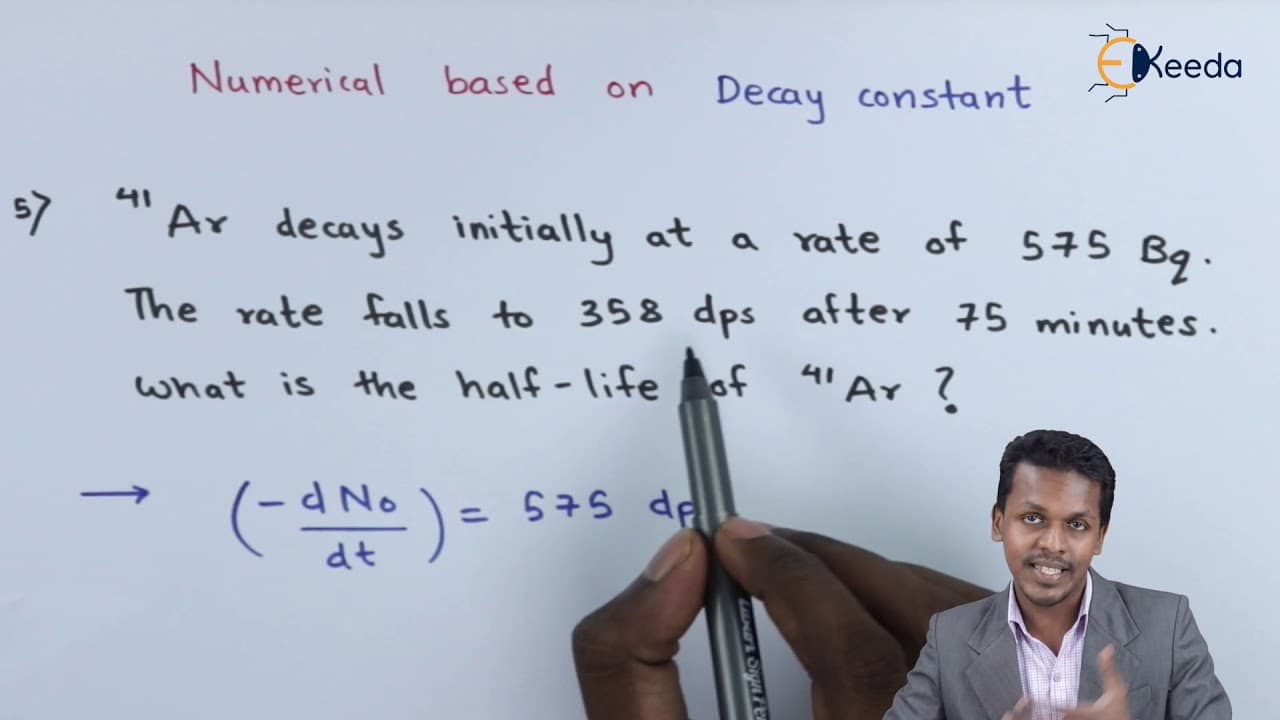 EKeeda
Numerical based on Decay constant
5) ⁴¹Ar decays initially at a rate of 575 Bq.
The rate falls to 358 dps after 75 minutes.
what is the half-life of ⁴¹Ar ?
→ (-dN₀/dt) = 575